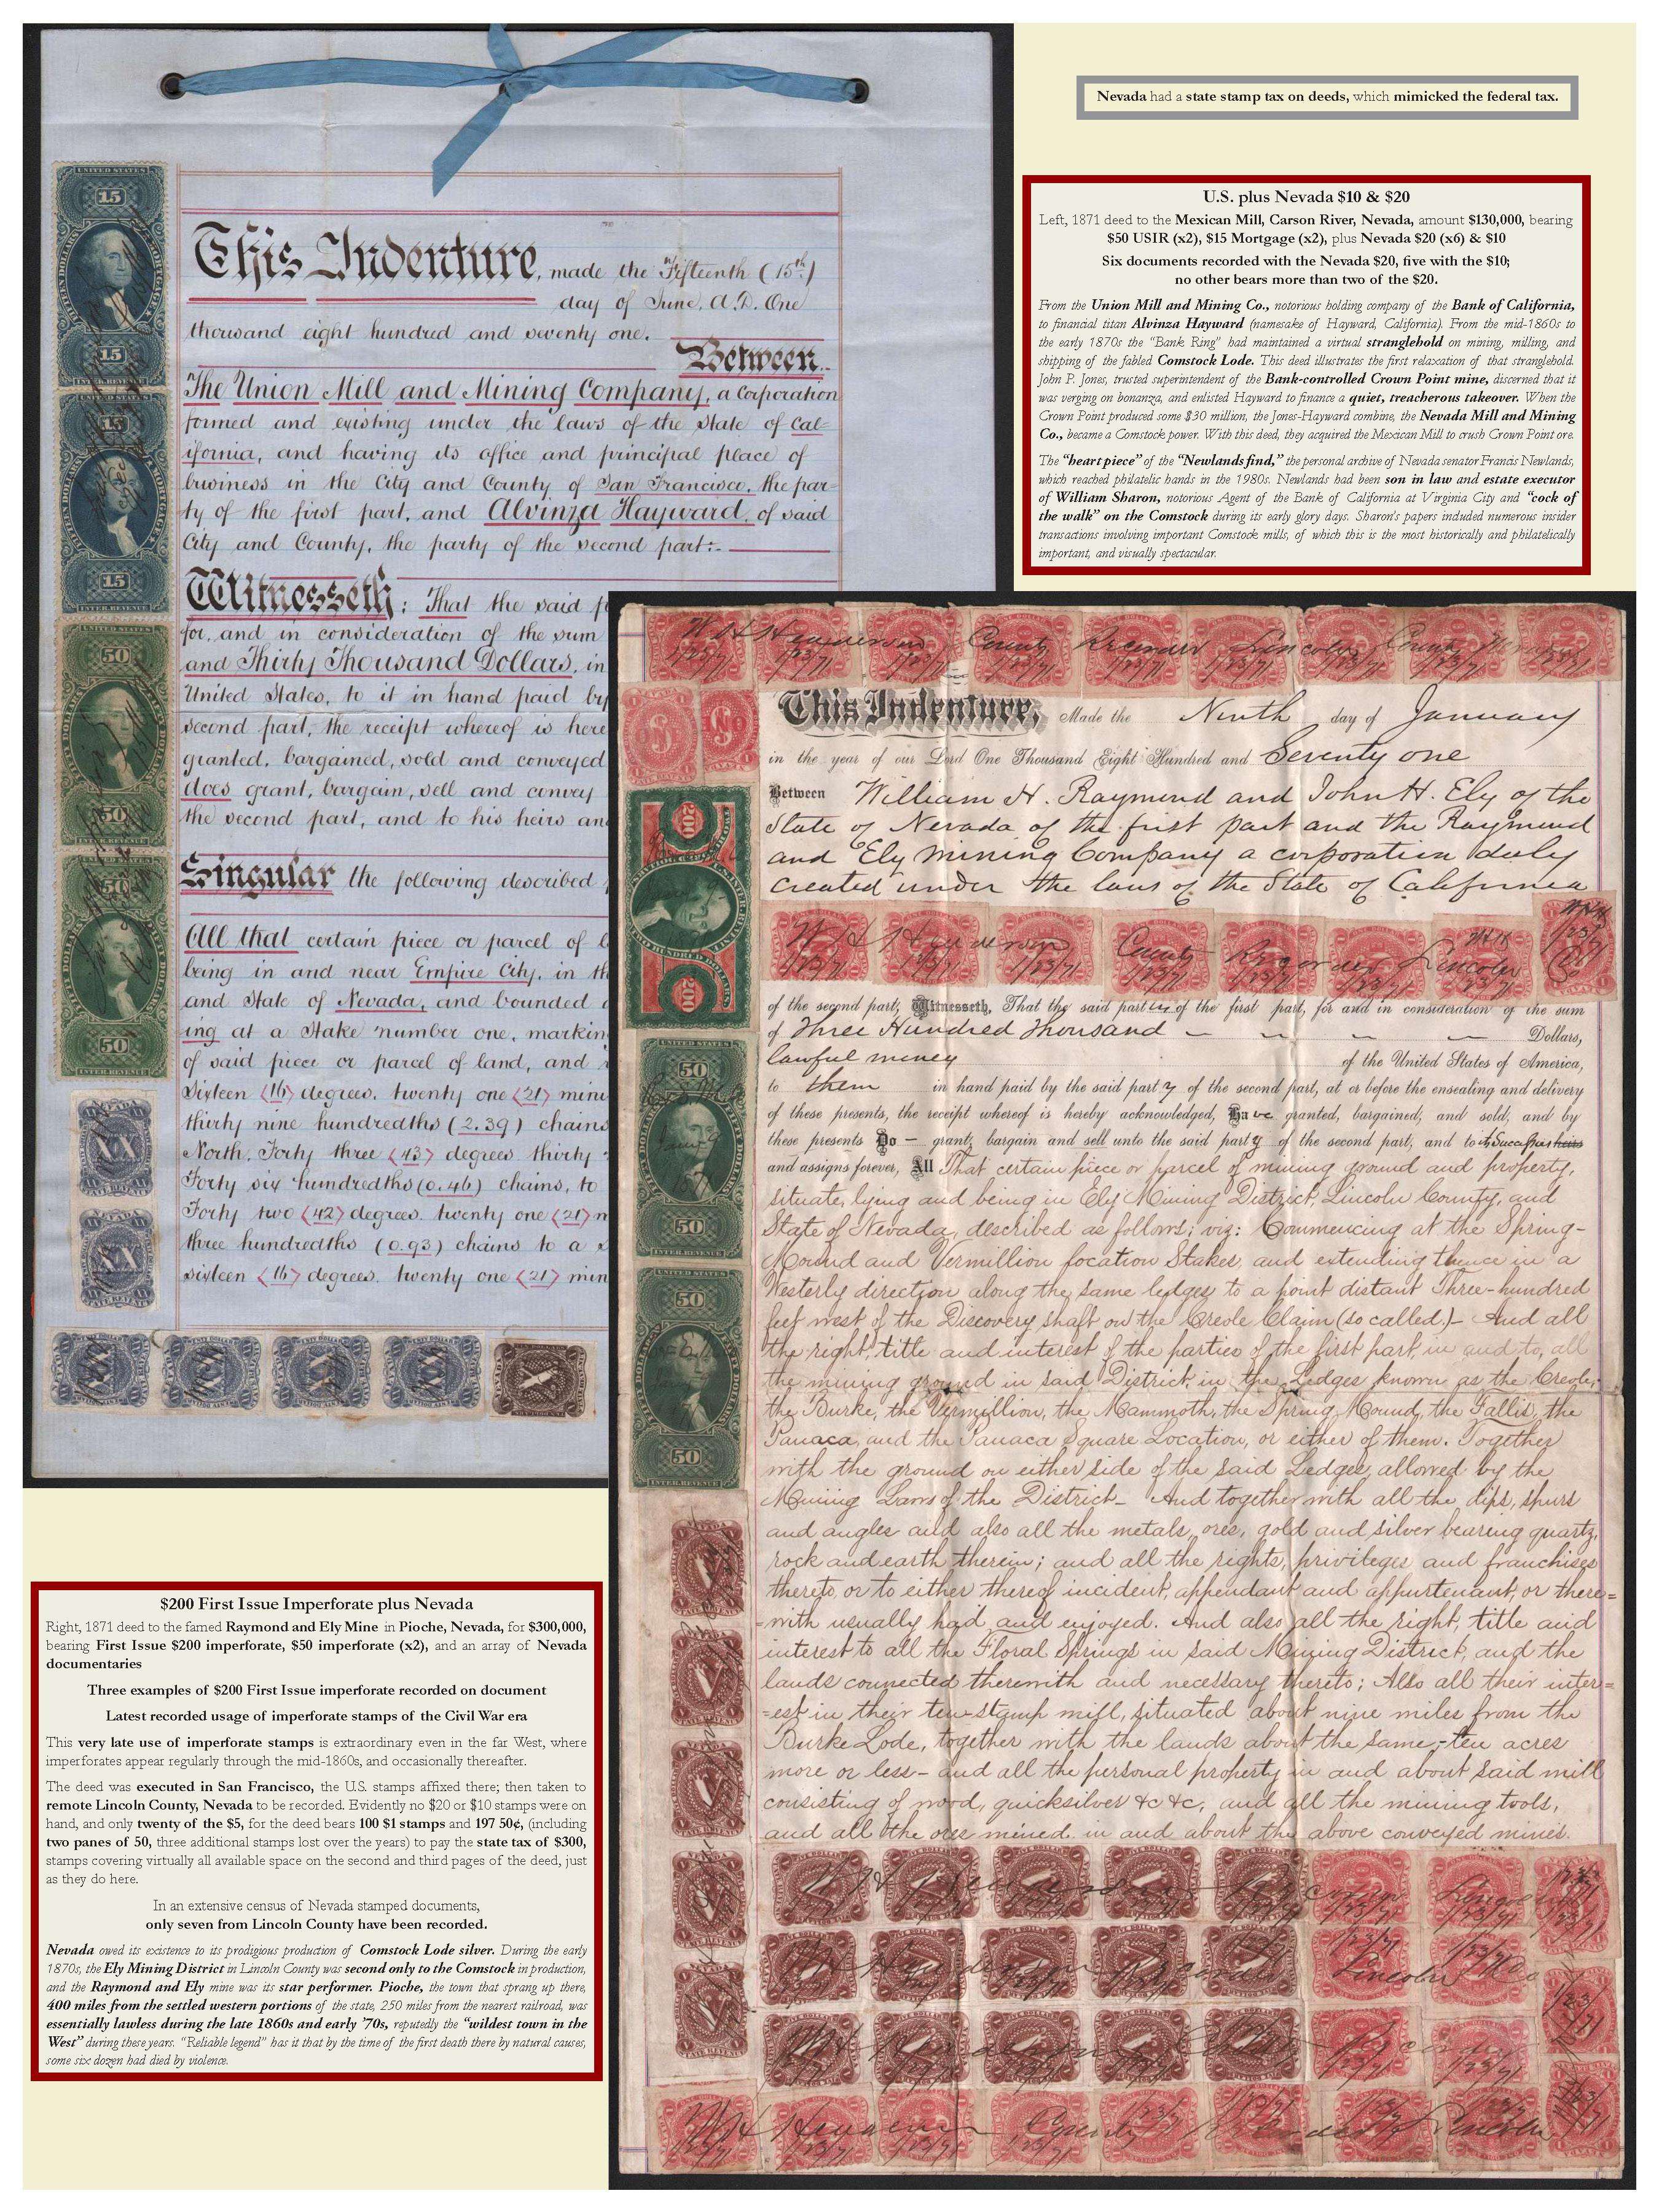 Nevada had a state stamp tax on deeds, which mimicked the federal tax.
U.S. plus Nevada $10 & $20
Left, 1871 deed to the Mexican Mill, Carson River, Nevada, amount $130,000, bearing
$50 USIR (x2), $15 Mortgage (x2), plus Nevada $20 (x6) & $10
Six documents recorded with the Nevada $20, five with the $10;
no other bears more than two of the $20.
From the Union Mill and Mining Co., notorious holding company of the Bank of California,
to financial titan Alvinza Hayward (namesake of Hayward, California). From the mid-1860s to
the early 1870s the "Bank Ring" had maintained a virtual stranglehold on mining, milling, and
shipping of the fabled Comstock Lode. This deed illustrates the first relaxation of that stranglehold.
John P. Jones, trusted superintendent of the Bank-controlled Crown Point mine, discerned that it
was verging on bonanza, and enlisted Hayward to finance a quiet, treacherous takeover. When the
Crown Point produced some $30 million, the Jones-Hayward combine, the Nevada Mill and Mining
Co., became a Comstock power. With this deed, they acquired the Mexican Mill to crush Crown Point ore.
The "heart piece" of the "Newlands find," the personal archive of Nevada senator Francis Newlands,
which reached philatelic hands in the 1980s. Newlands had been son in law and estate executor
of William Sharon, notorious Agent of the Bank of California at Virginia City and "cock of
the walk" on the Comstock during its early glory days. Sharon's papers included numerous insider
transactions involving important Comstock mills, of which this is the most historically and philatelically
important, and visually spectacular.
UNITED STATES
15
15
INTER. REVENUE
15
15
INTER. REVENUE
UNITED STATES
50
50
50
50
INTER. REVENUE
This Indenture, made the Fifteenth (15th)
day of June, A.D. One
thousand eight hundred and seventy one.
Between
The Union Mill and Mining Company, a Corporation
formed and existing under the laws of the State of Cal-
ifornia, and having its office and principal place of
business in the City and County of San Francisco, the par-
ty of the first part, and Alvinza Hayward, of said
City and County, the party of the second part:-
Witnesseth: That the said p
for, and in consideration of the sum
and Thirty Thousand Dollars, in
United States, to it in hand paid by
second part, the receipt whereof is here
granted, bargained, sold and conveyed
does grant, bargain, sell and convey
the second part, and to his heirs an
Singular the following described
All that certain piece or parcel of l
being in and near Empire City, in th
and State of Nevada, and bounded
ing at a Stake number one, markin
of said piece or parcel of land, and
Sixteen <16> degrees, twenty one <21> minu
thirty nine hundredths (2.39) chains
North, Forty three <43> degrees thirty
Forty six hundredths (0.46) chains, to
Forty two <42> degrees, twenty one <21> m
three hundredths (0.93) chains to a s
sixteen <16> degrees, twenty one <21> min
W H Henderson County Recorder Lincoln County Nevada
This Indenture, Made the Ninth day of January
in the year of our Lord One Thousand Eight Hundred and Seventy one
Between William H. Raymond and John H. Ely of the
State of Nevada of the first part and the Raymond
and Ely Mining Company a corporation duly
created under the laws of the State of California
W H Henderson County Recorder Lincoln Co
of the second part, Witnesseth, That the said parties of the first part, for and in consideration of the sum
of Three Hundred Thousand Dollars,
lawful money of the United States of America,
to them in hand paid by the said party of the second part, at or before the ensealing and delivery
of these presents, the receipt whereof is hereby acknowledged, Have granted, bargained, and sold, and by
these presents Do – grant, bargain and sell unto the said party of the second part, and to its Successors heirs
and assigns forever, All That certain piece or parcel of mining ground and property,
situate, lying and being in Ely Mining District, Lincoln County, and
State of Nevada, described as follows; viz: Commencing at the Spring-
Mound and Vermillion location Stakes, and extending thence in a
Westerly direction along the same ledges to a point distant Three-hundred
feet west of the Discovery shaft on the Creole Claim (so called.)– And all
the right, title and interest of the parties of the first part, in and to, all
the mining ground in said District, in the Ledges known as the Creole,
the Burke, the Vermillion, the Mammoth, the Spring Mound, the Fallis, the
Panaca, and the Panaca Square Location, or either of them. Together
with the ground on either side of the said Ledges, allowed by the
Mining Laws of the District– And together with all the dips, spurs
and angles and also all the metals, ores, gold and silver bearing quartz,
rock and earth therein; and all the rights, privileges and franchises
thereto, or to either thereof incident, appendant and appurtenant, or there=
=with usually had and enjoyed. And also all the right, title and
interest to all the Floral Springs in said Mining District, and the
lands connected therewith and necessary thereto; Also all their inter=
=est in their ten-stamp mill, situated about nine miles from the
Burke Lode, together with the lands about the same,-ten acres
more or less– and all the personal property in and about said mill
consisting of wood, quicksilver &c &c, and all the mining tools,
and all the ores mined in and about the above conveyed mines.
$200 First Issue Imperforate plus Nevada
Right, 1871 deed to the famed Raymond and Ely Mine in Pioche, Nevada, for $300,000,
bearing First Issue $200 imperforate, $50 imperforate (x2), and an array of Nevada
documentaries
Three examples of $200 First Issue imperforate recorded on document
Latest recorded usage of imperforate stamps of the Civil War era
This very late use of imperforate stamps is extraordinary even in the far West, where
imperforates appear regularly through the mid-1860s, and occasionally thereafter.
The deed was executed in San Francisco, the U.S. stamps affixed there; then taken to
remote Lincoln County, Nevada to be recorded. Evidently no $20 or $10 stamps were on
hand, and only twenty of the $5, for the deed bears 100 $1 stamps and 197 50¢, (including
two panes of 50, three additional stamps lost over the years) to pay the state tax of $300,
stamps covering virtually all available space on the second and third pages of the deed, just
as they do here.
In an extensive census of Nevada stamped documents,
only seven from Lincoln County have been recorded.
Nevada owed its existence to its prodigious production of Comstock Lode silver. During the early
1870s, the Ely Mining District in Lincoln County was second only to the Comstock in production,
and the Raymond and Ely mine was its star performer. Pioche, the town that sprang up there,
400 miles from the settled western portions of the state, 250 miles from the nearest railroad, was
essentially lawless during the late 1860s and early '70s, reputedly the "wildest town in the
West" during these years. "Reliable legend" has it that by the time of the first death there by natural causes,
some six dozen had died by violence.